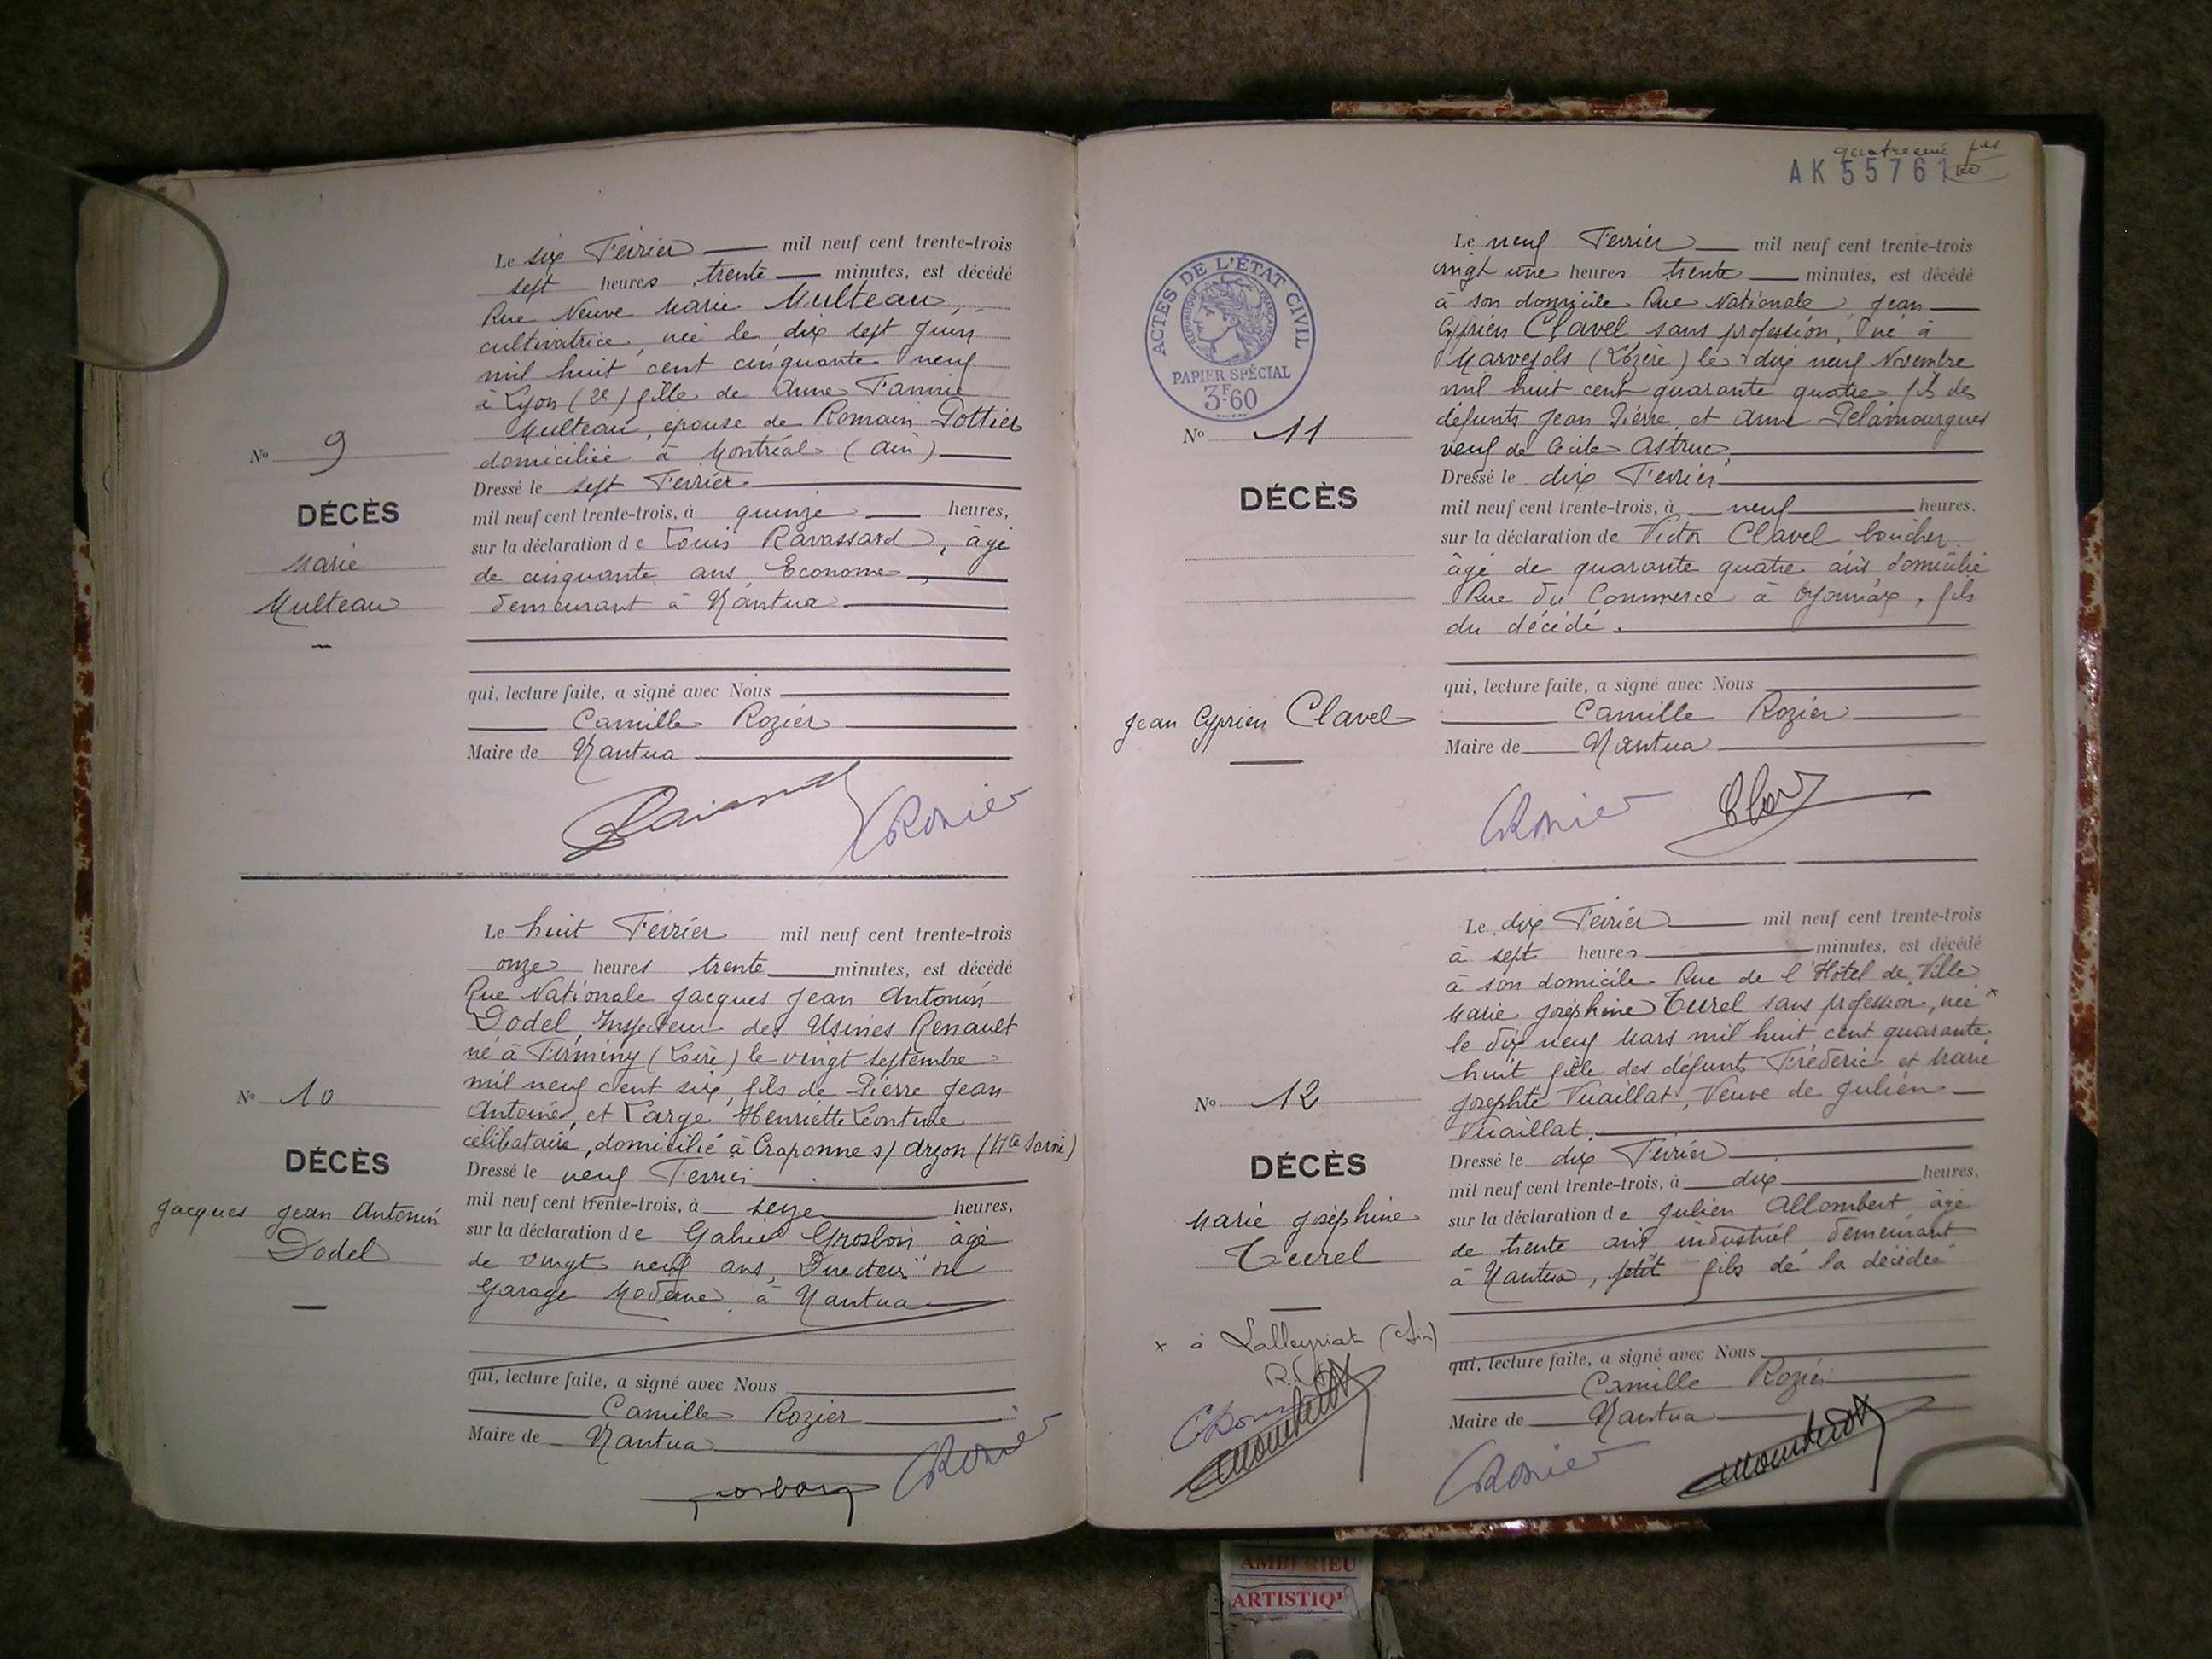 Le six Février mil neuf cent trente-trois
sept heures trente minutes, est décédé
Rue Neuve Marie Multeau,
cultivatrice, née le dix sept Juin
mil huit cent cinquante neuf
à Lyon (2e) fille de Anne Fannie
Multeau, épouse de Romain Pottier
domiciliée à Montréal (Ain)
Nº 9
DÉCÈS
Marie
Multeau
Dressé le sept Février
mil neuf cent trente-trois, à quinze heures,
sur la déclaration de Louis Ravassard, âgé
de cinquante ans, Econome,
demeurant à Nantua
qui, lecture faite, a signé avec Nous
Camille Rozier
Maire de Nantua
CRozier
Le huit Février mil neuf cent trente-trois
onze heures trente minutes, est décédé
Rue Nationale Jacques Jean Antonin
Dodel Inspecteur des Usines Renault
né à Firminy (Loire) le vingt septembre
mil neuf cent six, fils de Pierre Jean
Antoine, et Large Henriette Léontine
célibataire, domicilié à Craponne s/ Arzon (Hte
Nº 10
DÉCÈS
Jacques Jean Antonin
Dodel
Dressé le neuf Février
mil neuf cent trente-trois, à seize heures,
sur la déclaration de Grosbois âgé
de vingt neuf ans, Directeur du
Garage Moderne à Nantua
qui, lecture faite, a signé avec Nous
Camille Rozier
Maire de Nantua
CRozier
AK 55761
ACTES DE L'ÉTAT CIVIL
RÉPUBLIQUE FRANÇAISE
PAPIER SPÉCIAL
3F.60
Le neuf Février mil neuf cent trente-trois
vingt une heures trente minutes, est décédé
à son domicile Rue Nationale, Jean
Cyprien Clavel sans profession, né à
Marvejols (Lozère) le dix neuf Novembre
mil huit cent quarante quatre, fils des
défunts Jean Pierre et Anne Pelamourgues
veuf de Cécile Astruc
Nº 11
DÉCÈS
Jean Cyprien Clavel
Dressé le dix Février
mil neuf cent trente-trois, à neuf heures,
sur la déclaration de Victor Clavel boucher
âgé de quarante quatre ans, domicilié
Rue du Commerce à Oyonnax, fils
du décédé.
qui, lecture faite, a signé avec Nous
Camille Rozier
Maire de Nantua
CRozier
Le dix Février mil neuf cent trente-trois
à sept heures minutes, est décédé
à son domicile Rue de l'Hôtel de Ville
Marie Joséphine Turel sans profession, née x
le dix neuf Mars mil huit cent quarante
huit fille des défunts Frédéric et Marie
Josephte Vuaillat, Veuve de Julien
Vuaillat.
Nº 12
DÉCÈS
Marie Joséphine
Turel
x à Lalleyriat (Ain)
CRozier
Dressé le dix Février
mil neuf cent trente-trois, à dix heures,
sur la déclaration de Julien Allombert âgé
de trente ans industriel demeurant
à Nantua, petit fils de la décédée
qui, lecture faite, a signé avec Nous
Camille Rozier
Maire de Nantua
CRozier
AMBERIEU